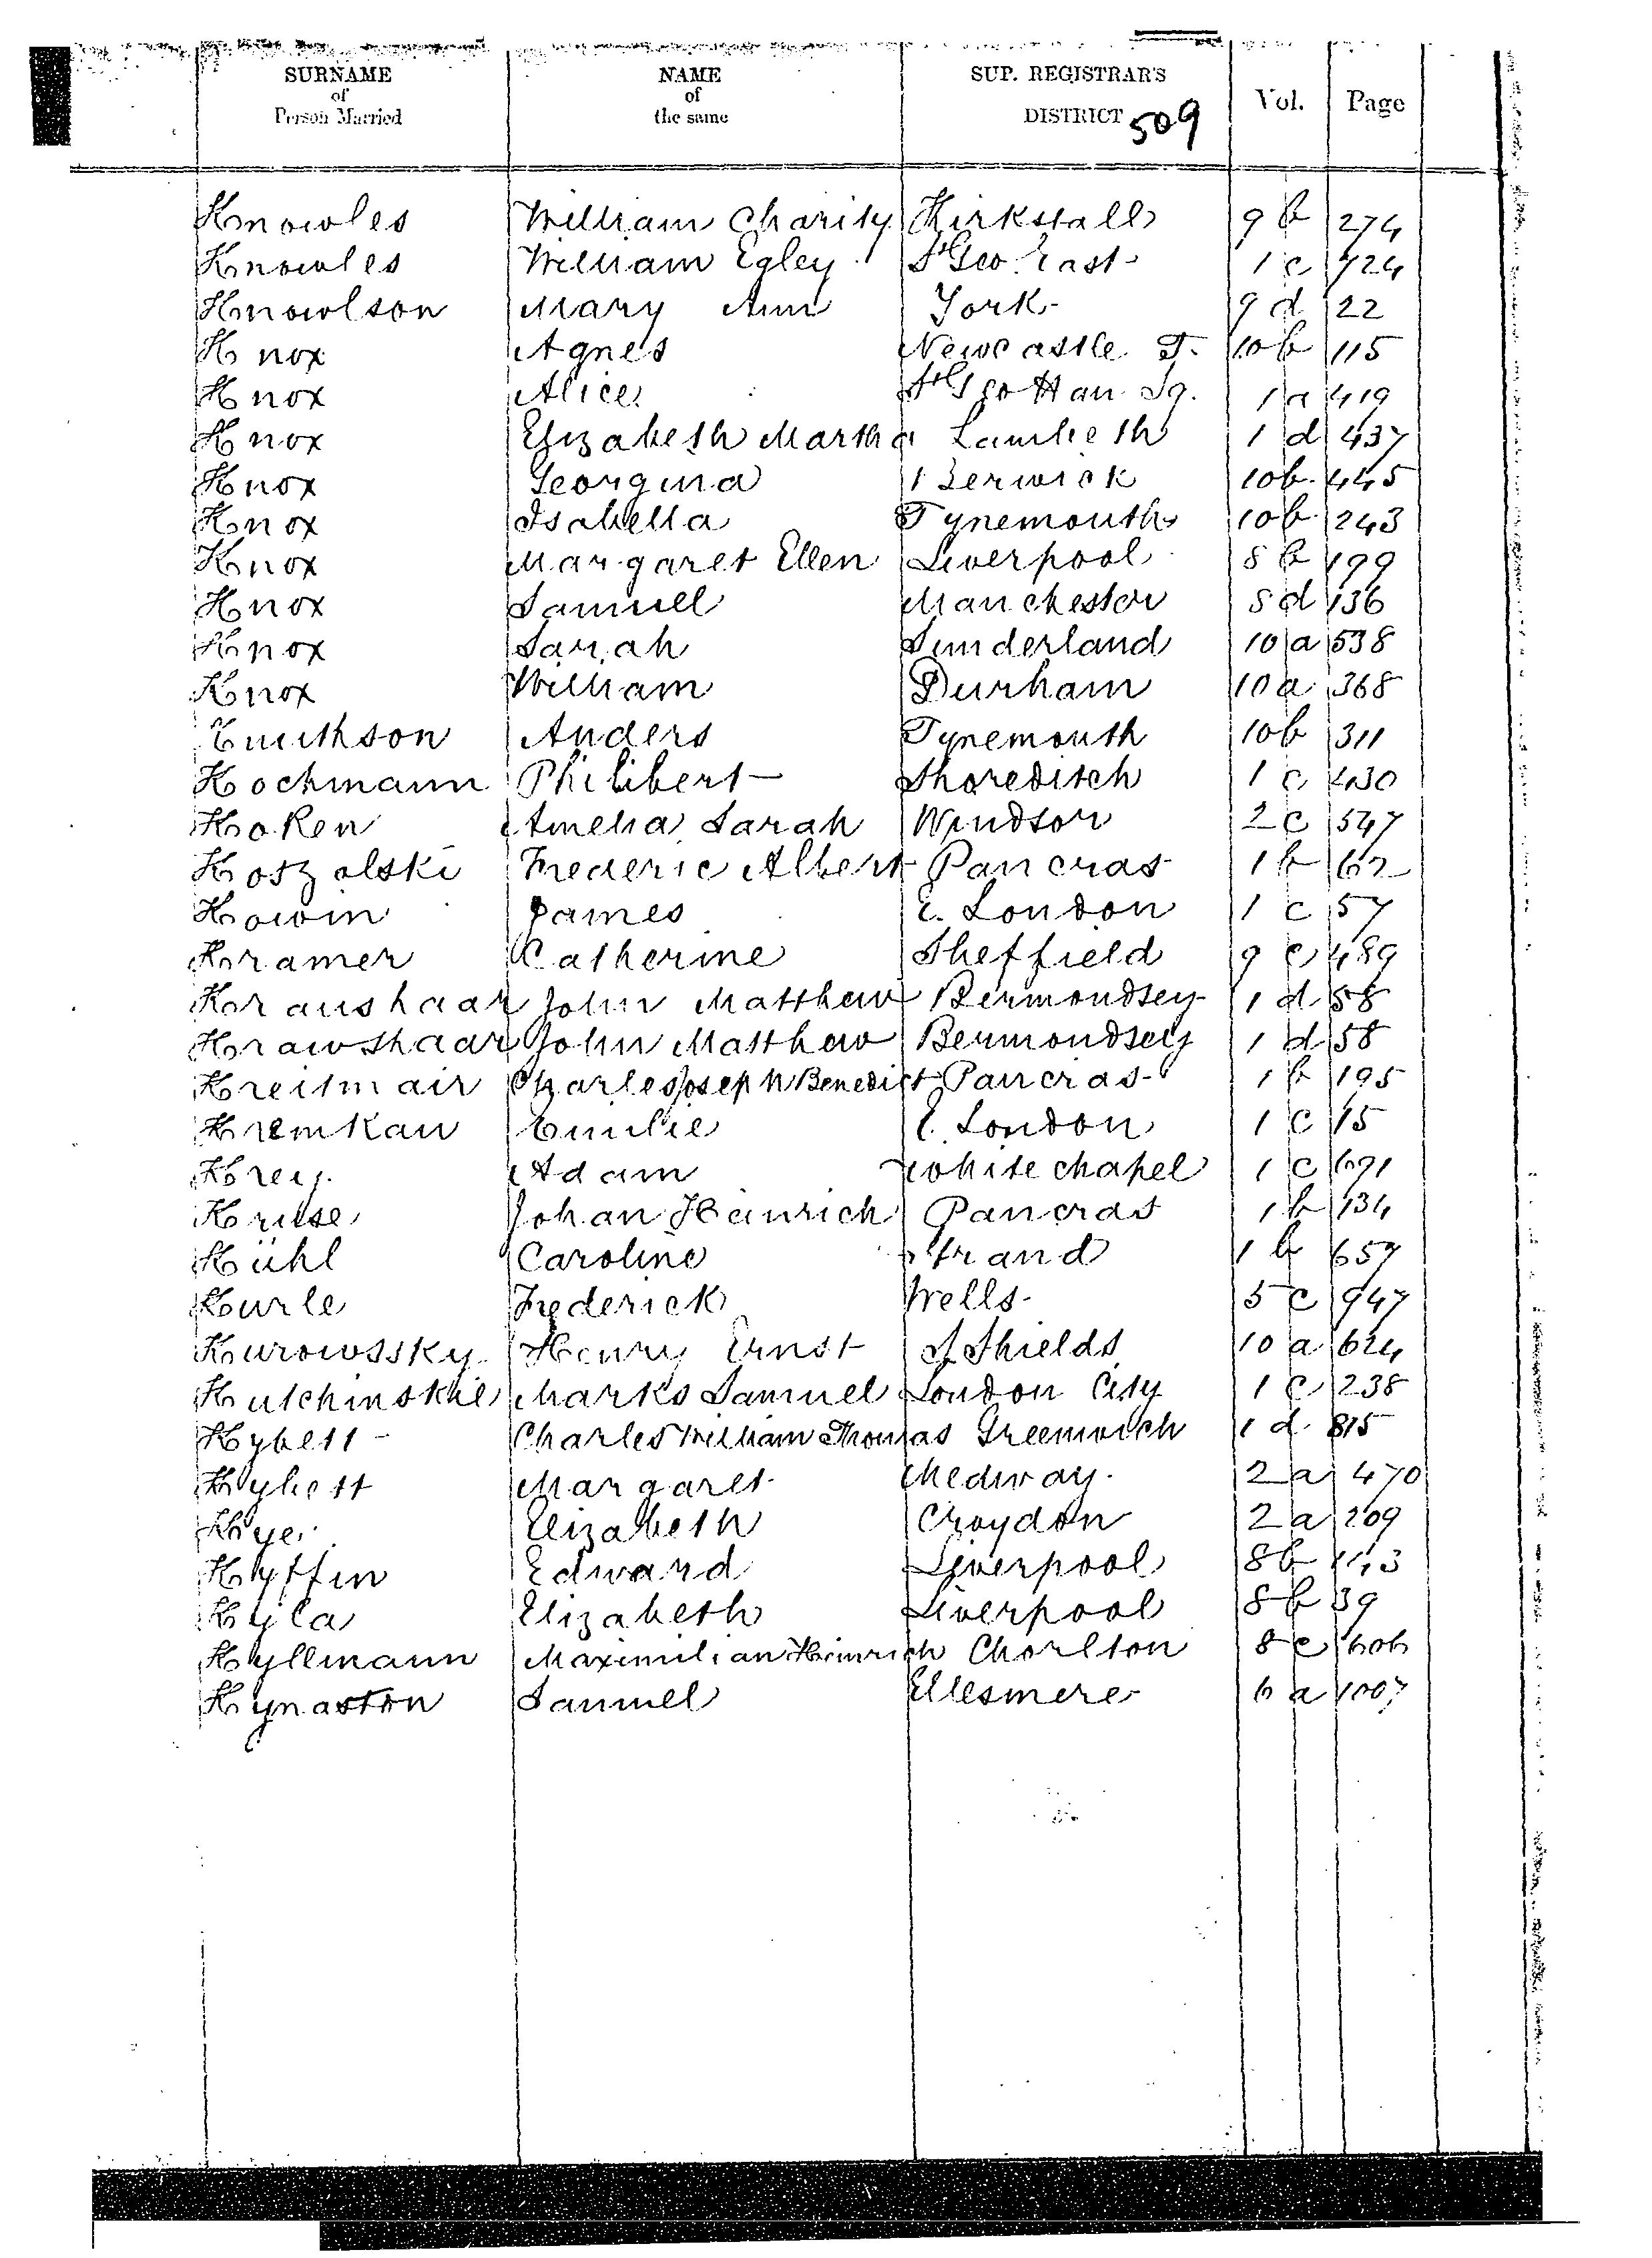 SURNAME of Person Married NAME of the same SUP. REGISTRAR'S DISTRICT 509 Vol. Page
Knowles William Charity Kirkstall 9 b 274
Knowles William Egley St Geo. East 1 c 724
Knowlson Mary Ann York 9 d 22
Knox Agnes Newcastle T. 10b 115
Knox Alice St Geo Han. Sq. 1 a 419
Knox Elizabeth Martha Lambeth 1 d 437
Knox Georgina Berwick 10b 445
Knox Isabella Tynemouth 10b 243
Knox Margaret Ellen Liverpool 8 b 199
Knox Samuel Manchester 8 d 136
Knox Sarah Sunderland 10 a 538
Knox William Durham 10 a 368
Anders Tynemouth 10b 311
Kochmann Philibert Shoreditch 1 c 430
Koken Amelia Sarah Windsor 2 c 547
Koszalski Frederic Albert Pancras 1 b 62
Kowin James E. London 1 c 57
Kramer Catherine Sheffield 9 c 489
Kraushaar John Matthew Bermondsey 1 d 58
Krawshaar John Matthew Bermondsey 1 d 58
Kreitmair Charles Joseph Benedict Pancras 1 b 195
Kremkau Emilie E. London 1 c 15
Krey Adam Whitechapel 1 c 691
Kruse Johan Heinrich Pancras 1 b 134
Kühl Caroline Strand 1 b 657
Kurle Frederick Wells 5 c 947
Kurowssky Henry Ernst S Shields 10 a 624
Kutchinskie Marks Samuel London City 1 c 238
Kybett Charles William Thomas Greenwich 1 d 815
Kybett Margaret Medway 2 a 470
Kye Elizabeth Croydon 2 a 209
Kyffin Edward Liverpool 8b
Kyla Elizabeth Liverpool 8 b 39
Kyllmann Maximilian Heinrich Chorlton 8 c 606
Kynaston Samuel Ellesmere 6 a 1007